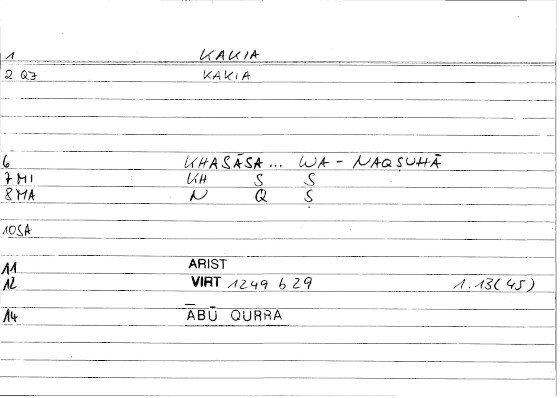 1 KAKIA
2 QZ KAKIA
6 KHASĀSA... WA - NAQṢUHĀ
7 MI KH S S
8 MA N Q Ṣ
10 SA
11 ARIST
12 VIRT 1249 b 29 1.13(45)
14 ĀBŪ QURRA